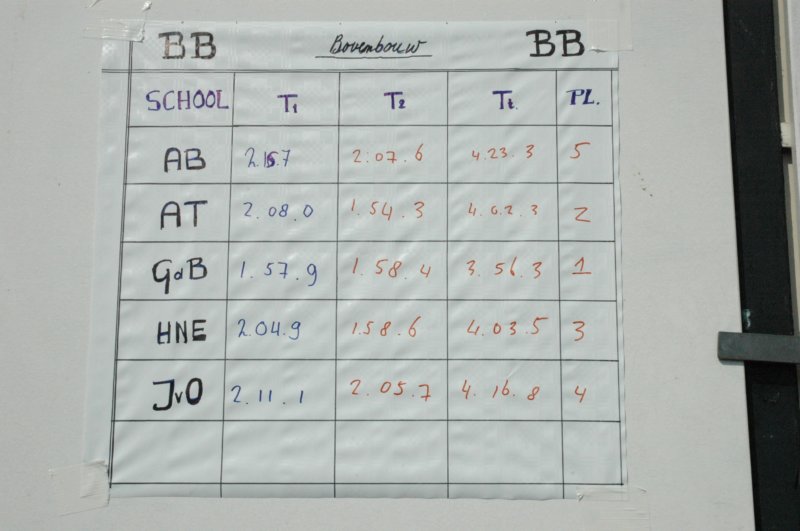 BB Bovenbouw BB
SCHOOL T1 T2 Tt. PL.
AB 2.15.7 2:07.6 4.23.3 5
AT 2.08.0 1.54.3 4.02.3 2
GdB 1.57.9 1.58.4 3.56.3 1
HNE 2.04.9 1.58.6 4.03.5 3
JvO 2.11.1 2.05.7 4.16.8 4